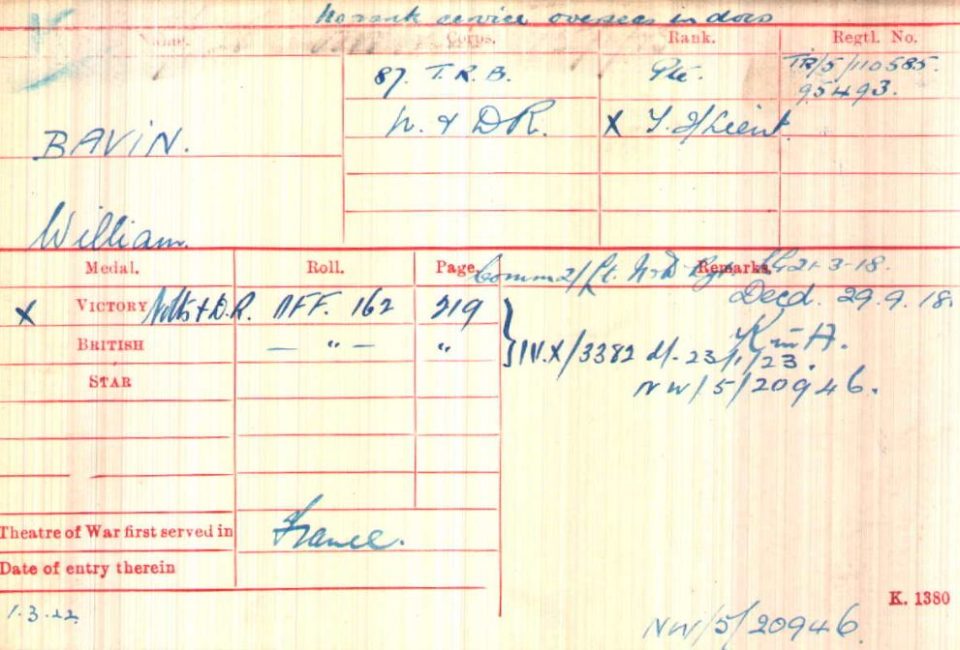 No rank service overseas in docs
Name. Corps. Rank. Regtl. No.
87. T.R.B. Pte. TR/5/110585.
95493.
BAVIN. N. & D R. X T. 2/Lieut.
William.
Medal. Roll. Page Remarks.
Comm 2/Lt. N & D Rgt 21-3-18.
X VICTORY Notts & D.R. OFF. 162 219 Decd. 29.9.18.
BRITISH — " — " K in A.
IV.X/3382 d/- 23/1/23.
STAR NW/5/20946.
Theatre of War first served in France.
Date of entry therein
1.3.22 K. 1380
NW/5/20946